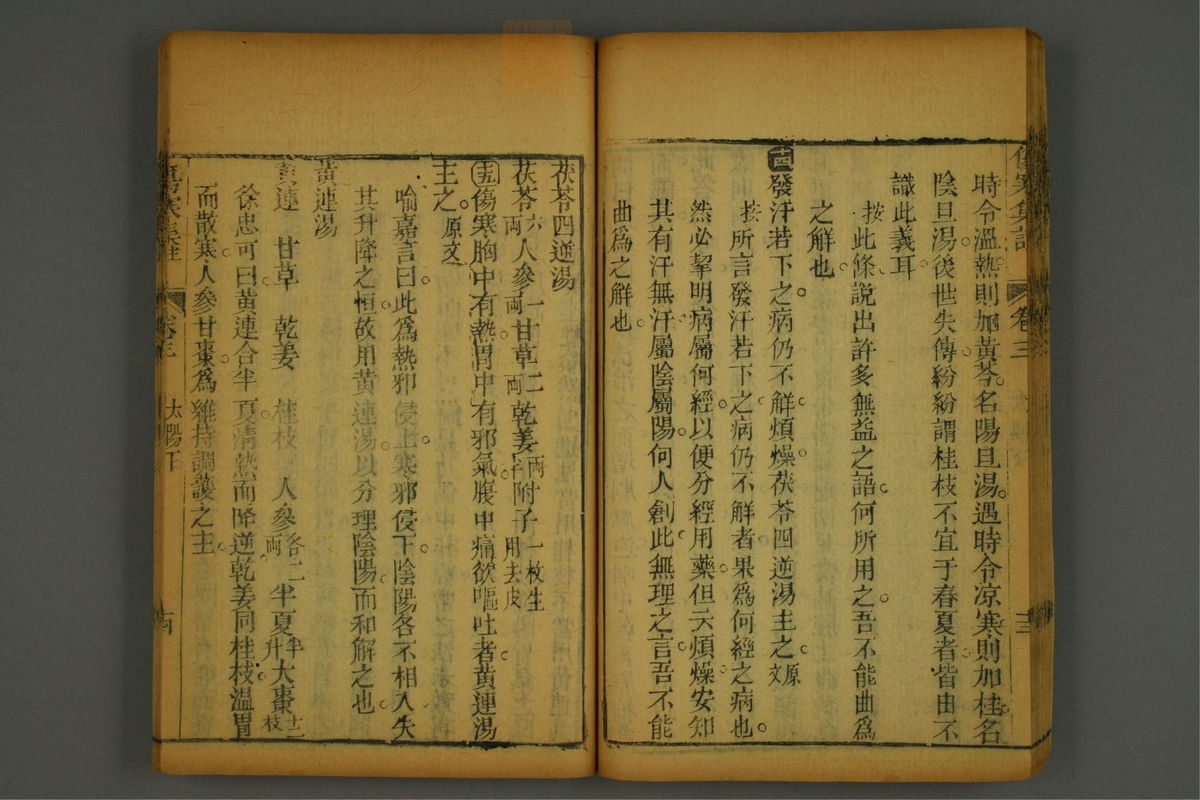 傷寒集註
卷三
十三
時令溫熱則加黃芩名陽旦湯遇時令凉寒則加桂名
陰旦湯後世失傳紛紛謂桂枝不宜于春夏者皆由不
識此義耳
按此條說出許多無益之語何所用之吾不能曲爲
之解也
十四發汗若下之病仍不解煩燥茯苓四逆湯主之原文
按所言發汗若下之病仍不解者果爲何經之病也
然必挈明病屬何經以便分經用藥但云煩燥安知
其有汗無汗屬陰屬陽何人創此無理之言吾不能
曲爲之解也
茯苓四逆湯
茯苓六兩人參一兩甘草二兩乾姜兩半附子一枚生用去皮
十五傷寒胸中有熱胃中有邪氣腹中痛欲嘔吐者黃連湯
主之原文
喻嘉言曰此爲熱邪侵上寒邪侵下陰陽各不相入失
其升降之恒故用黃連湯以分理陰陽而和解之也
黃連湯
黃連 甘草 乾姜 桂枝 人參各二兩 半夏半升 大棗十二枝
徐忠可曰黃連合半夏清熱而降逆乾姜同桂枝溫胃
而散寒人參甘棗爲維持調護之主
卷三
太陽下
十四